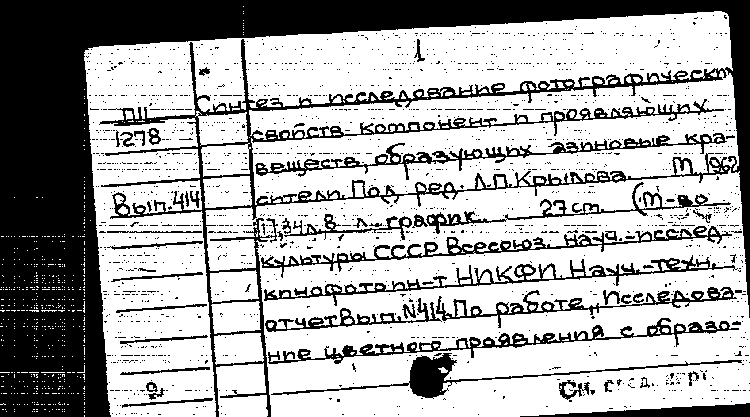 1
Синтез и исследование фотографическ
ПІІ
1278
свойств компонент и проявляющих
веществ, образующих азиновые кра-
Вып. 414
сители. Под ред. Л.П. Крылова. М, 1962
[1], 34 л, 8 л. график. 27 cm. (М-во
культуры СССР Всесоюз. науч.-исслед
кинофотоин-т НИКФИ. Науч.-техн.
отчет Вып. №414. По работе „Исследова-
ние цветного проявления с образо-
См. след. карт